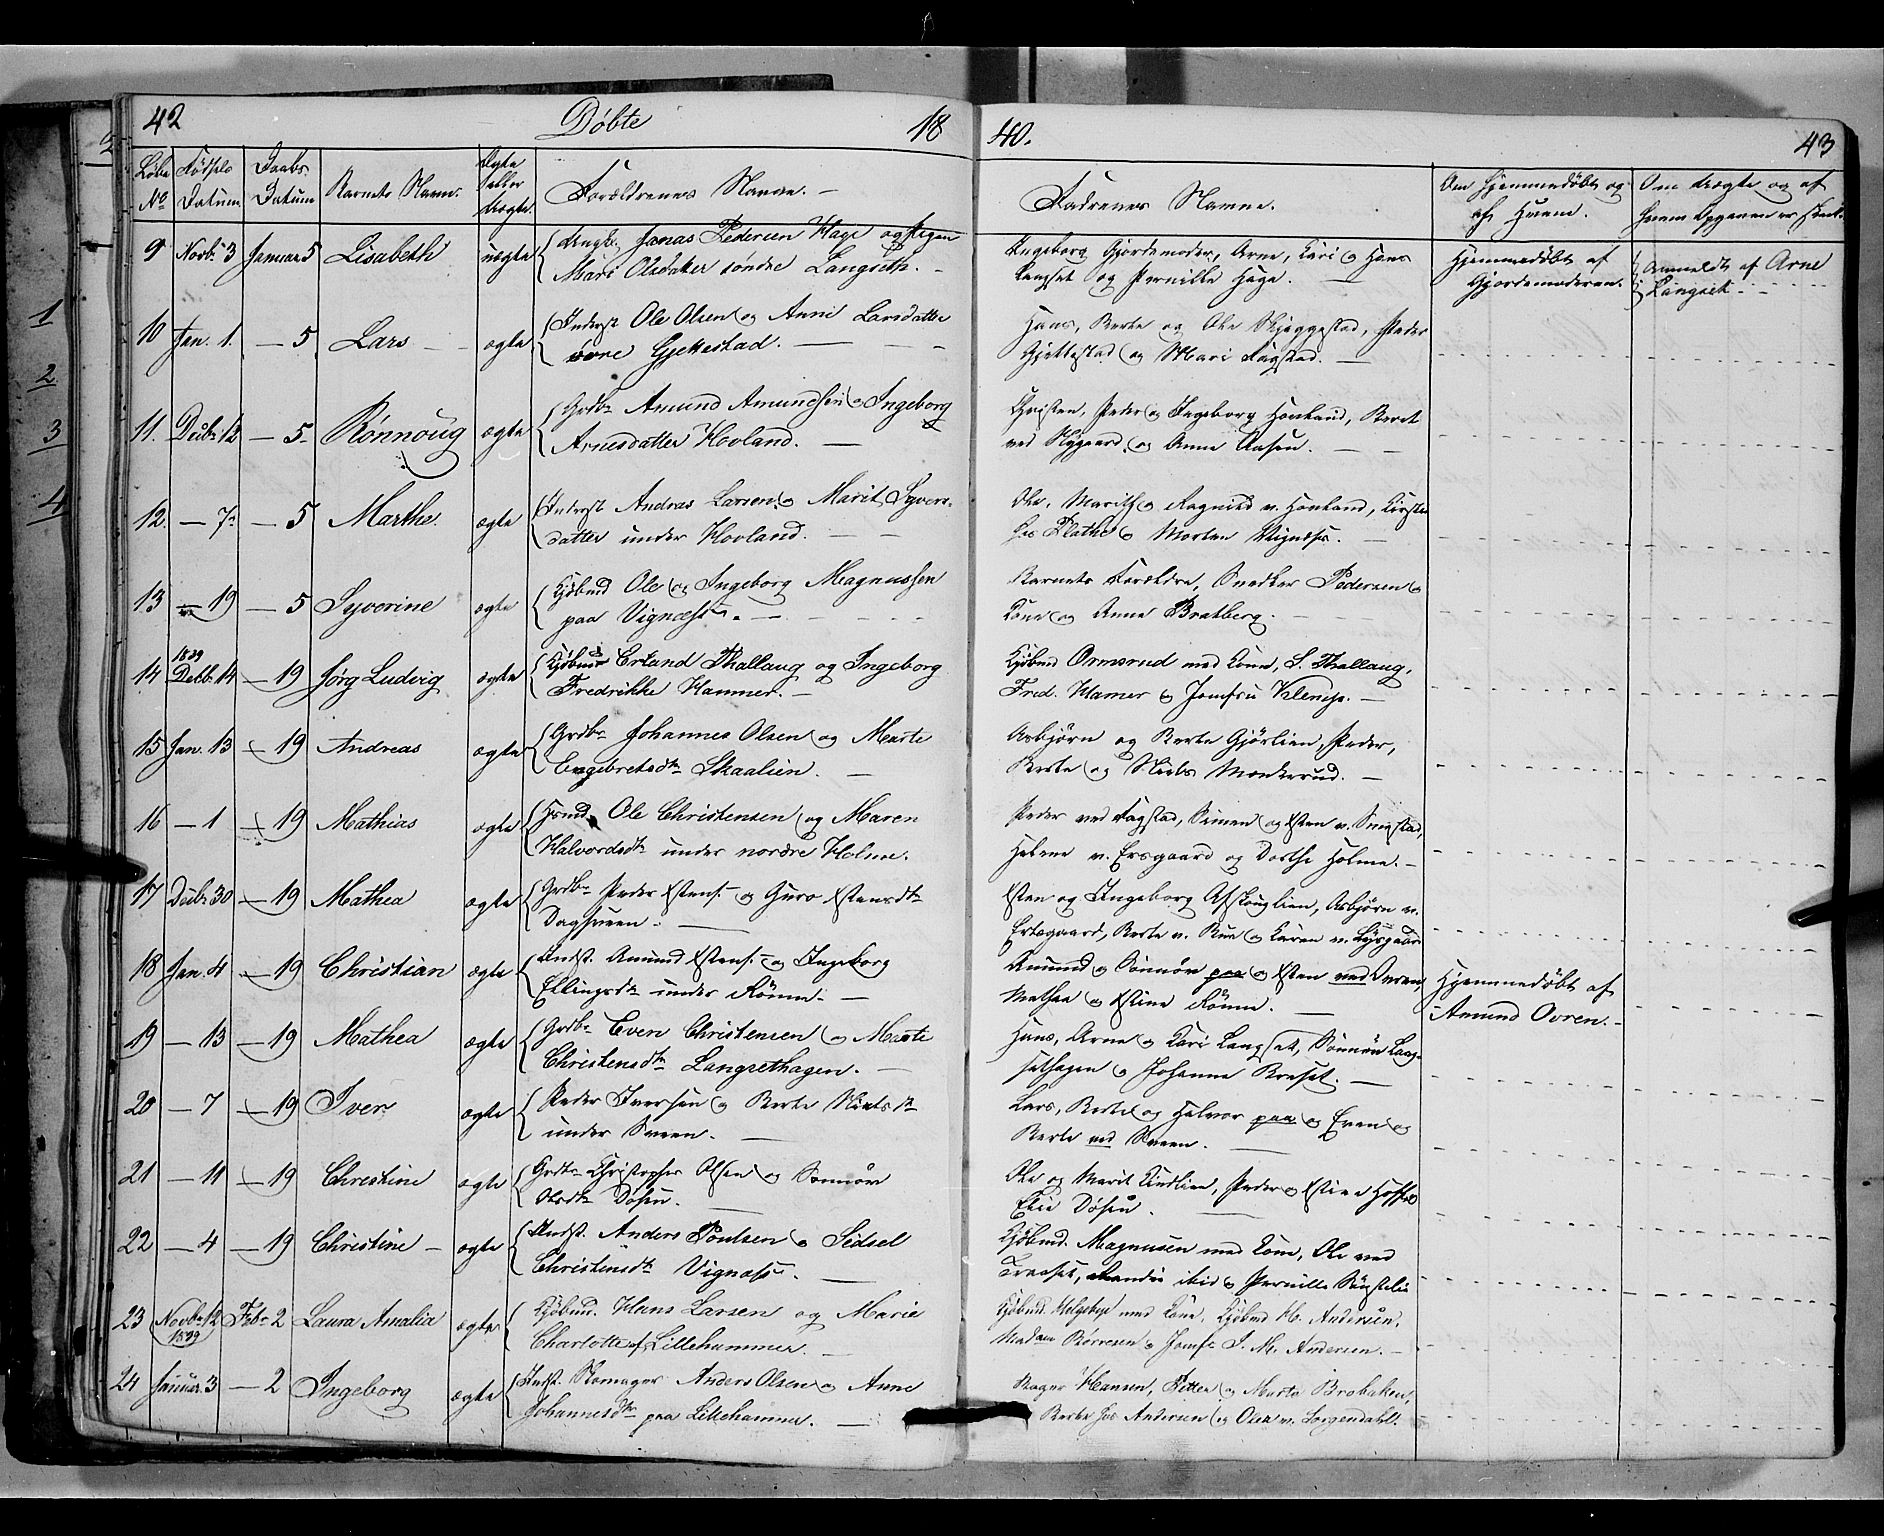 42 Døbte 18
40. 43
Løbe No Fødsels Datum Daabs Datum Barnets Navn. Ægte eller Uægte. Forældrenes Navne. —
Fadrenes Navne. Om Hjemmedøbt og af Hvem. Om Uægte og af hvem Opgaven er skeet.
9 Novb. 3 Januar 5 Lisabeth uægte Ungk. Jonas Pedersen Hage og Pigen
Mari Olsdatter søndre Langseth. —
Ingeborg Gjordemoder, Arne, Kari og Hans
Langset og Pernille Hage. —
Hjemmedøbt af
Gjordemoderen.
Anmeldt af Arne
Langset
10 Jan. 1. — 5 Lars ægte Inderst Ole Olsen og Anne Larsdatter
øvre Gjettestad. —
Hans, Berte og Ole Skjeggestad, Peder
Gjettestad og Mari Fagstad. —
11. Decbr. 12 — 5. Rønnoug ægte Grdbr. Amund Amundsen og Ingeborg
Arnesdatter Hovland. —
Christen, Peder og Ingeborg Hovland, Beret
ved Nygaard, og Anne Aasen. —
12. — 7 — 5 Marthe ægte Inderst Andreas Larsen og Marit Syvers-
datter under Hovland. —
Ole, Marith og Ragnild v. Hovland, Kirsti
hos Plathe og Morten Vignæss. —
13 — 19 — 5 Syverine ægte Kjøbmd Ole og Ingeborg Magnussen
paa Vignæss. —
Barnets Forældre, Snedker Pedersen og
Kone og Anne Bratberg. —
14 1839 Decbr. 14 — 19 Jørg Ludvig ægte Kjøbmd Erland Thallaug og Ingeborg
Fredrikke Hammer. —
Kjøbmd Ormsrud med Kone, S. Thallaug,
Fred. Hamer og Jomfru Klemp. —
15 Jan. 13 — 19 Andreas ægte Grdbr. Johannes Olsen og Marte
Engebretsdtr. Skaalien. —
Asbjørn og Berte Gjørlien, Peder,
Berte og Niels Monkerud. —
16 — 1 — 19 Mathias ægte Hsmd. Ole Christensen og Maren
Halvordsdtr. under nordre Holme.
Peder ved Fagstad, Simen og Esten v. Smestad,
Helene v. Ersgaard og Dorthe Holme. —
17 Decbr. 30 — 19 Mathea ægte Grdbr. Peder Estens. og Guro Estensdtr.
Dagsveen. —
Esten og Ingeborg Afskouglien, Asbjørn v.
Ersgaard, Berte v. Rue og Karen v. Lysgaar
18 Jan. 4 — 19 Christian ægte Indst. Amund Estens. og Ingeborg
Ellingsdtr. under Rönne. —
Amund og Sönnöv paa og Esten ved Ovren,
Mathea og Stine Rönne. —
Hjemmedøbt af
Amund Ovren. —
19 — 13 — 19 Mathea ægte Grdbr. Even Christensen og Marte
Christensdtr. Langsethagen. —
Hans, Arne og Kari Langset, Sönnöv Lang-
sethagen og Johanne Braset. —
20 — 7 — 19 Iver ægte Peder Iversen og Berte Nielsdtr.
under Sveen. —
Lars, Berte og Halvor paa og Even og
Berte ved Sveen.
21 — 11 — 19 Christine ægte Grdbr. Christopher Olsen og Sönnöv
Olsdtr. Døsen.
Ole og Marit Lindlien, Peder og Stine Hoff og
Elie Døsen. —
22 — 4 — 19 Christine — ægte Indst. Anders Poulsen og Sidsel
Christensdtr. Vignæss. —
Kjøbmd. Magnusen med Kone, Ole ved
ibid og Pernille
23 Novbr. 12 1839 Febr. 2 Laura Amalia ægte Kjøbmd. Hans Larsen og Marie
Charlotte af Lillehammer. —
Kjøbmd. Helgeby med Kone, Kjøbmd H. Andersen,
Madam Børresen og Jomf. J. M. Andersen. —
24 Januar. 3 — 2 Ingeborg ægte Indst. Skomager Anders Olsen og Anne
Johannesdtr. paa Lillehammer. —
Bager Hansen, Petter og Marte Brobakken,
Berte hos Andersen og Olea v. Sorgendahl.
1
2
3
4